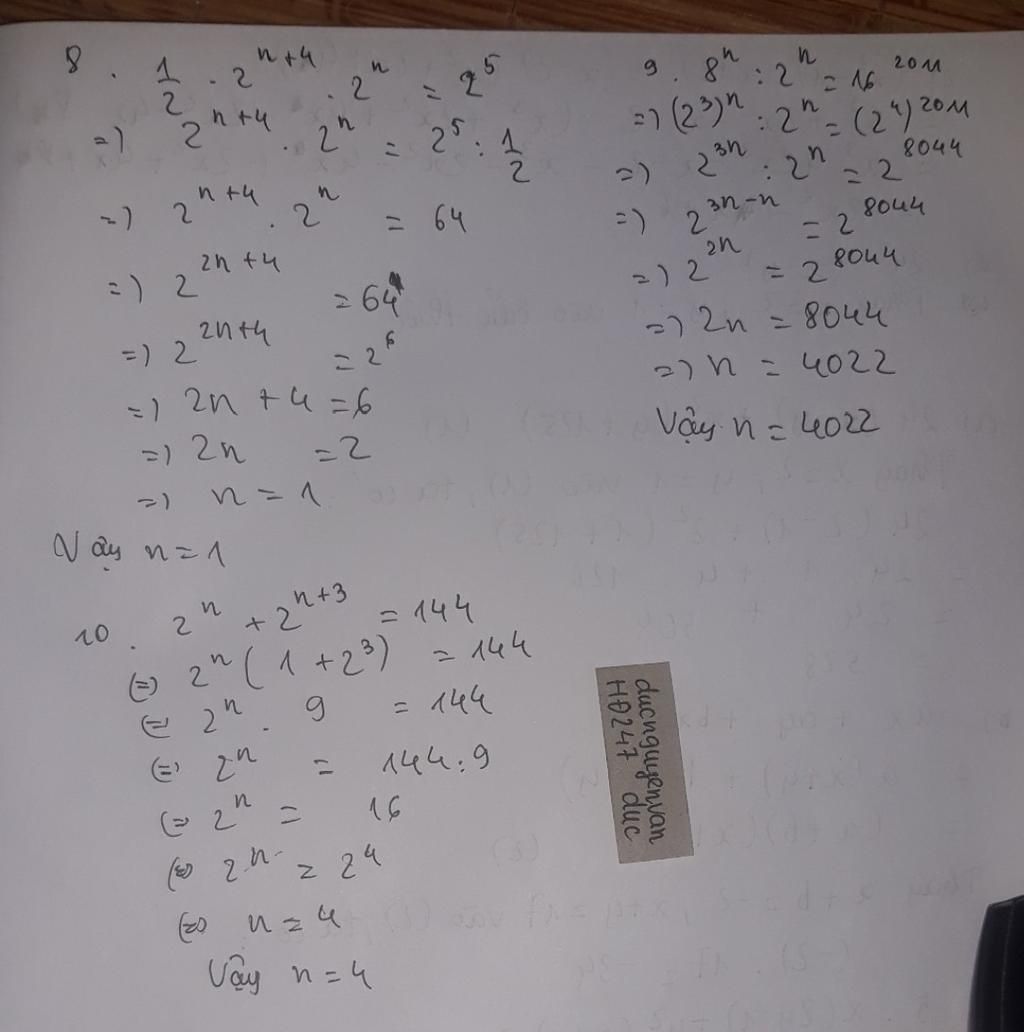 8. 1/2 . 2^(n+4) . 2^n = 2^5
=) 2^(n+4) . 2^n = 2^5 : 1/2
=) 2^(n+4) . 2^n = 64
=) 2^(2n+4) = 64
=) 2^(2n+4) = 2^6
=) 2n + 4 = 6
=) 2n = 2
=) n = 1
Vậy n = 1
9. 8^n : 2^n = 16^2011
=) (2^3)^n : 2^n = (2^4)^2011
=) 2^(3n) : 2^n = 2^8044
=) 2^(3n-n) = 2^8044
=) 2^(2n) = 2^8044
=) 2n = 8044
=) n = 4022
Vậy n = 4022
10. 2^n + 2^(n+3) = 144
(=) 2^n (1 + 2^3) = 144
(=) 2^n . 9 = 144
(=) 2^n = 144 : 9
(=) 2^n = 16
(=) 2^n = 2^4
(=) n = 4
Vậy n = 4
ducnguyenvan
HĐ247 duc